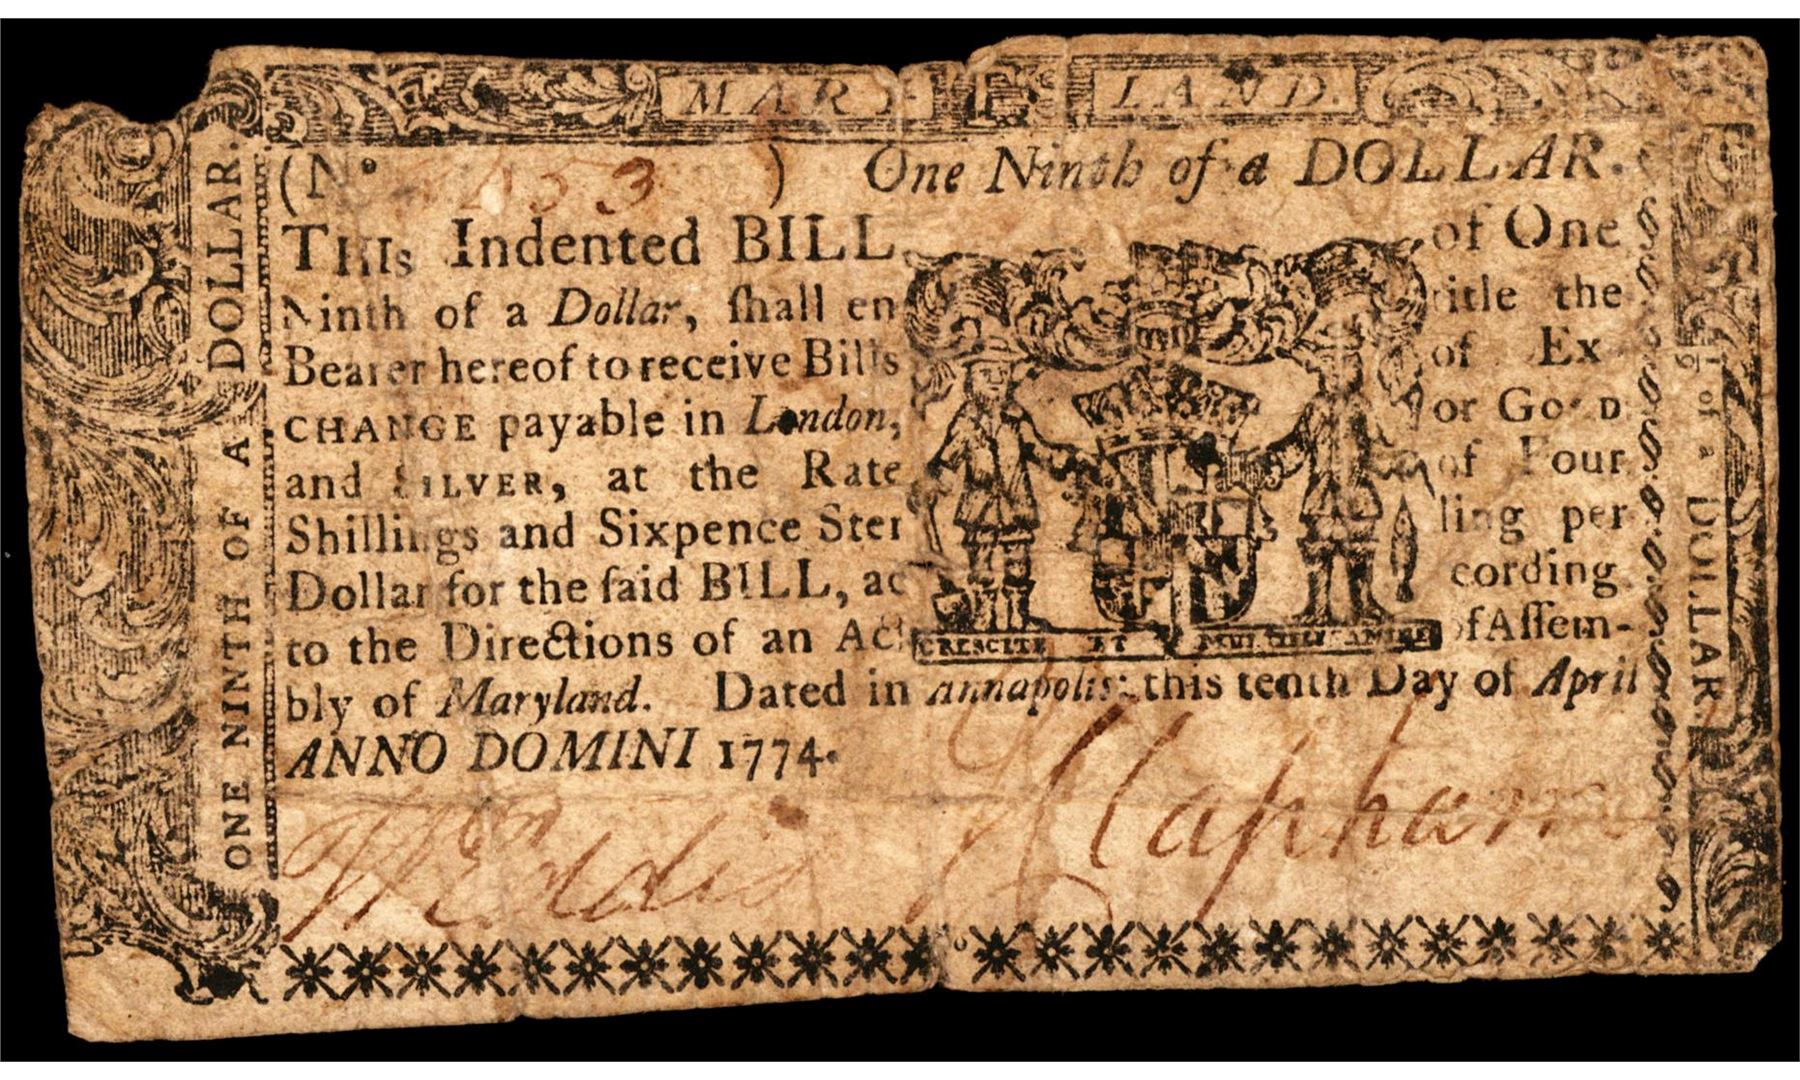 MARY- LAND.
(No ) One Ninth of a DOLLAR.
THIS Indented BILL of One
Ninth of a Dollar, ſhall en title the
Bearer hereof to receive Bills of Ex
CHANGE payable in London, or GOLD
and SILVER, at the Rate of Four
Shillings and Sixpence Ster ling per
Dollar for the ſaid BILL, ac cording
to the Directions of an Act of Aſſem-
bly of Maryland. Dated in Annapolis this tenth Day of April
ANNO DOMINI 1774.
CRESCITE ET MULTIPLICAMINI
Wm Eddis J Clapham
ONE NINTH OF A DOLLAR.
1/9 of a DOLLAR.